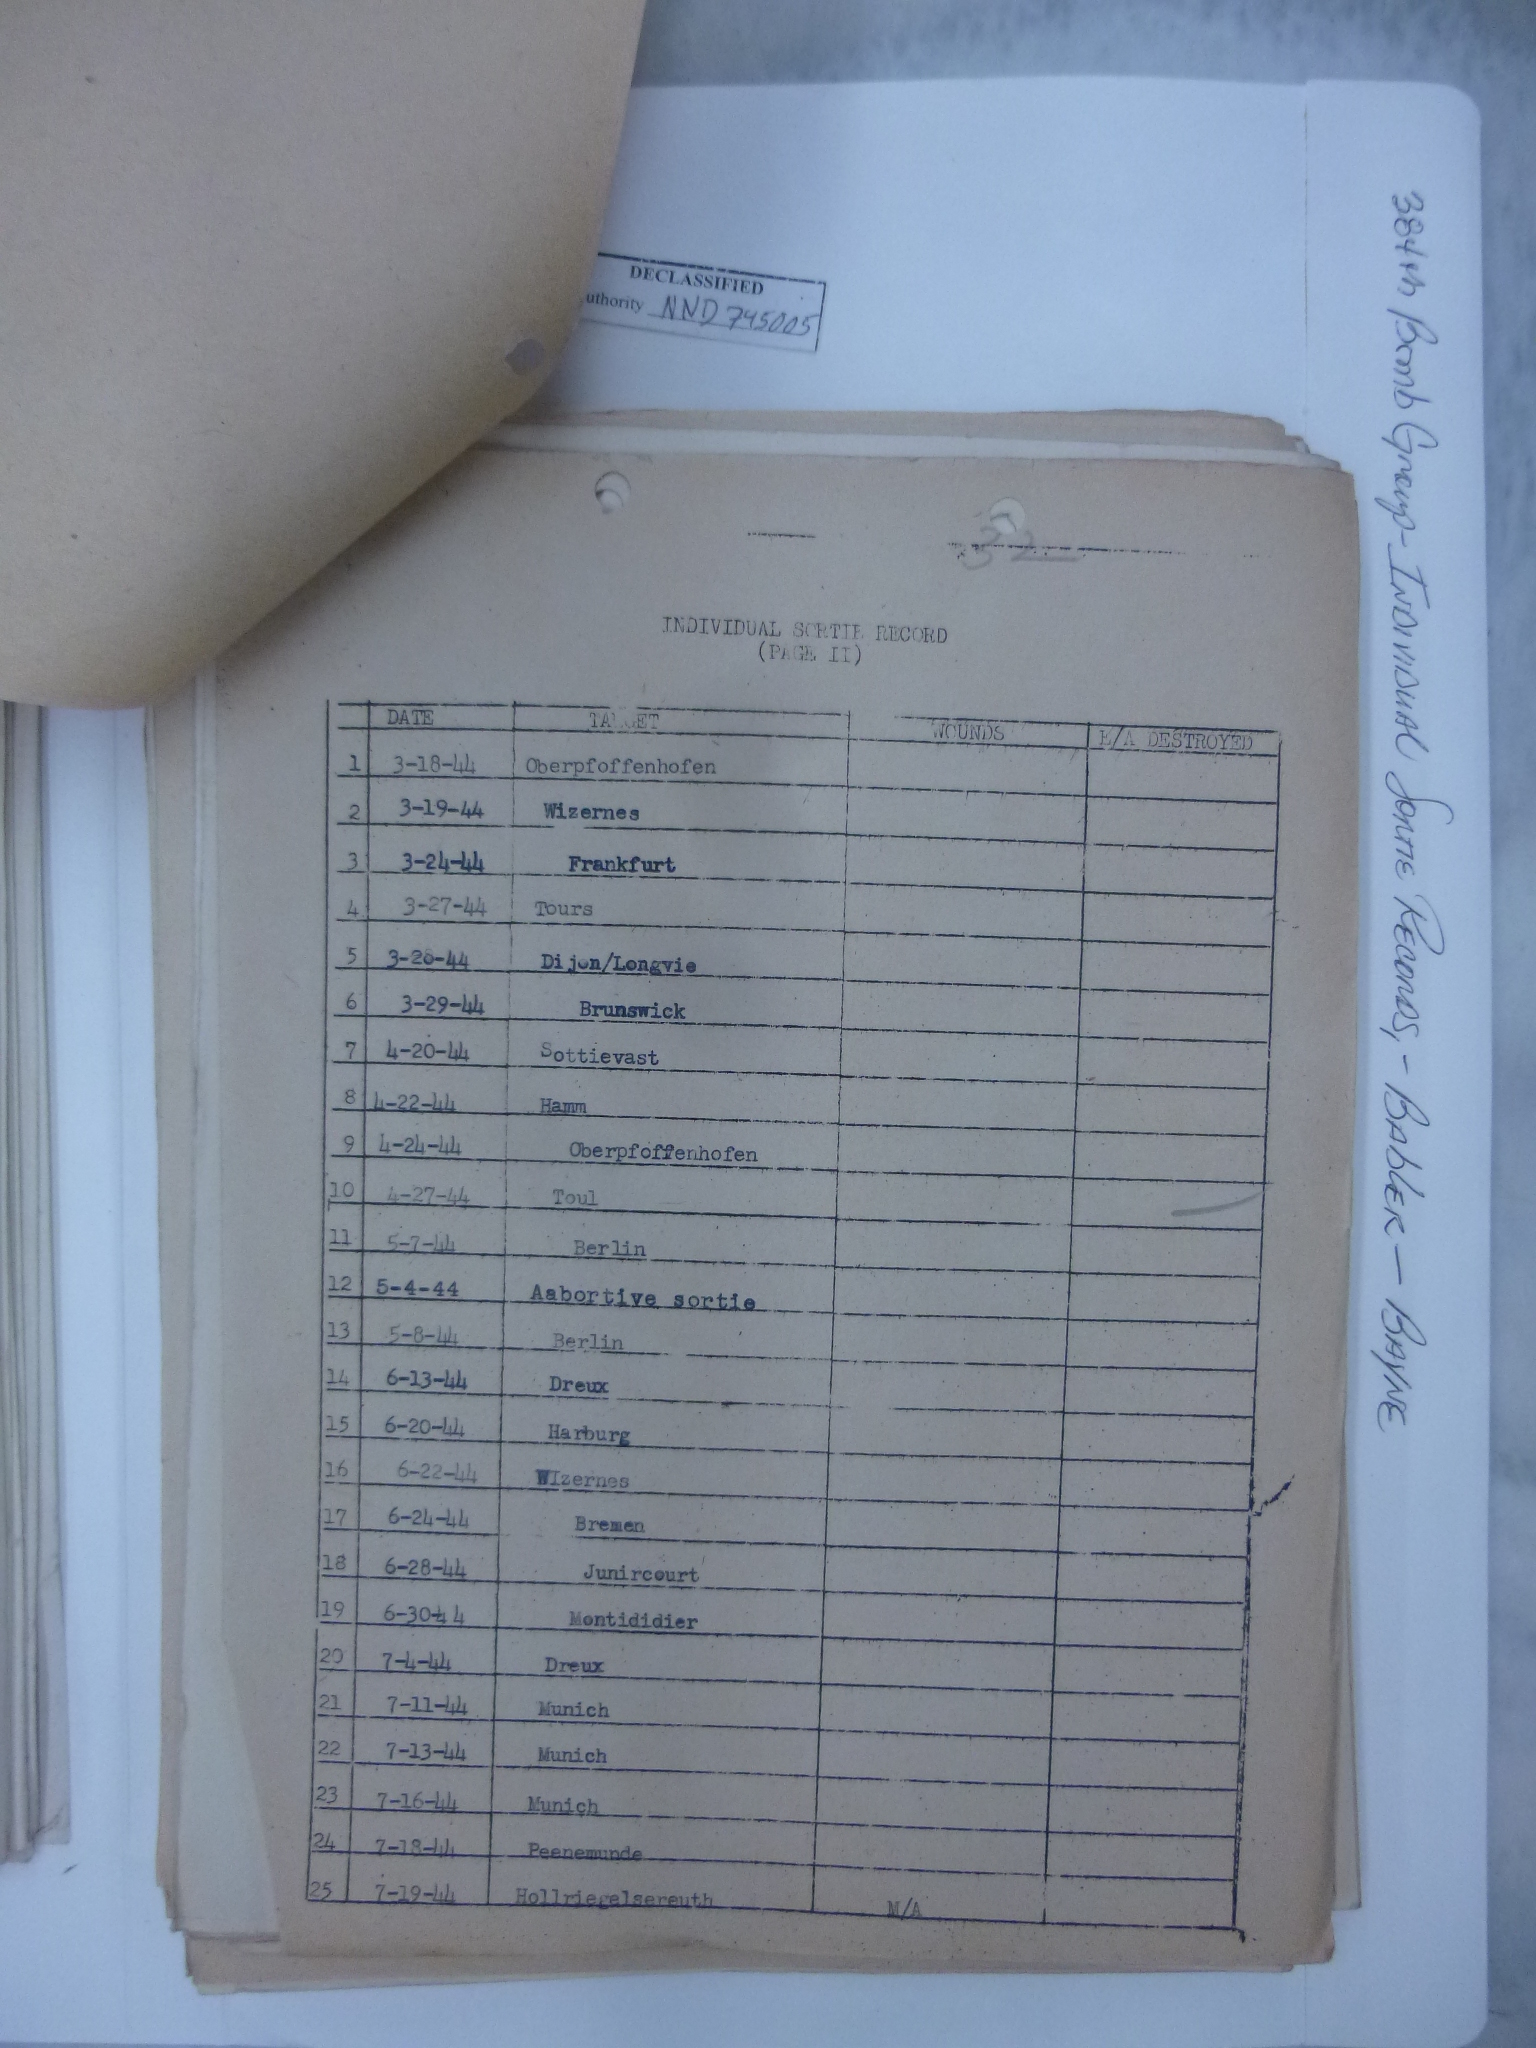 DECLASSIFIED
uthority NND 745005
384th Bomb Group - Individual Sortie Records, - Babler — Bayne
32
INDIVIDUAL SORTIE RECORD
(PAGE II)
DATE TARGET WOUNDS E/A DESTROYED
1 3-18-44 Oberpfoffenhofen
2 3-19-44 Wizernes
3 3-24-44 Frankfurt
4 3-27-44 Tours
5 3-28-44 Dijon/Longvie
6 3-29-44 Brunswick
7 4-20-44 Sottievast
8 4-22-44 Hamm
9 4-24-44 Oberpfoffenhofen
10 4-27-44 Toul
11 5-7-44 Berlin
12 5-4-44 Aabortive sortie
13 5-8-44 Berlin
14 6-13-44 Dreux
15 6-20-44 Harburg
16 6-22-44 WIzernes
17 6-24-44 Bremen
18 6-28-44 Junircourt
19 6-30-44 Montididier
20 7-4-44 Dreux
21 7-11-44 Munich
22 7-13-44 Munich
23 7-16-44 Munich
24 7-18-44 Peenemunde
25 7-19-44 Hollriegelsereuth N/A